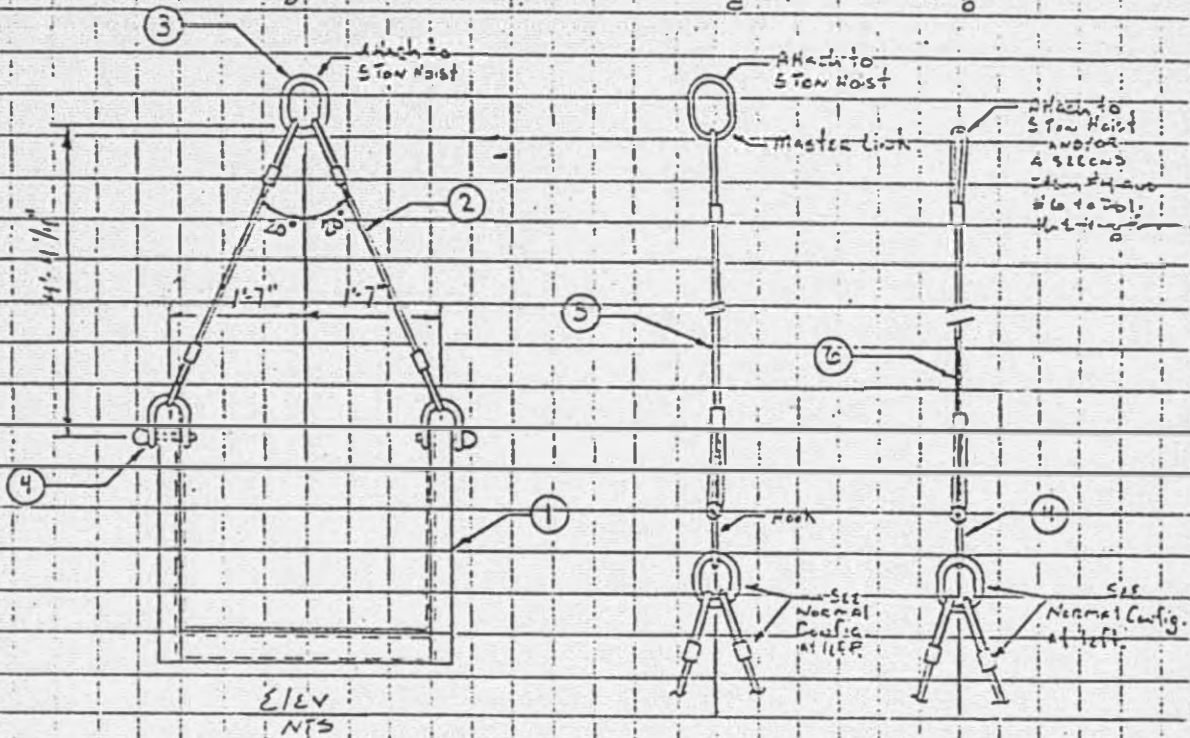 3
Attach to
5 Ton Hoist
2
20°
20°
1'-7"
1'-7"
4
1
Elev
NTS
Attach to
5 Ton Hoist
Master Link
5
Hook
See
Normal
Config.
At Left
Attach to
5 Ton Hoist
AND/OR
A Second
4
See
Normal Config.
At left.